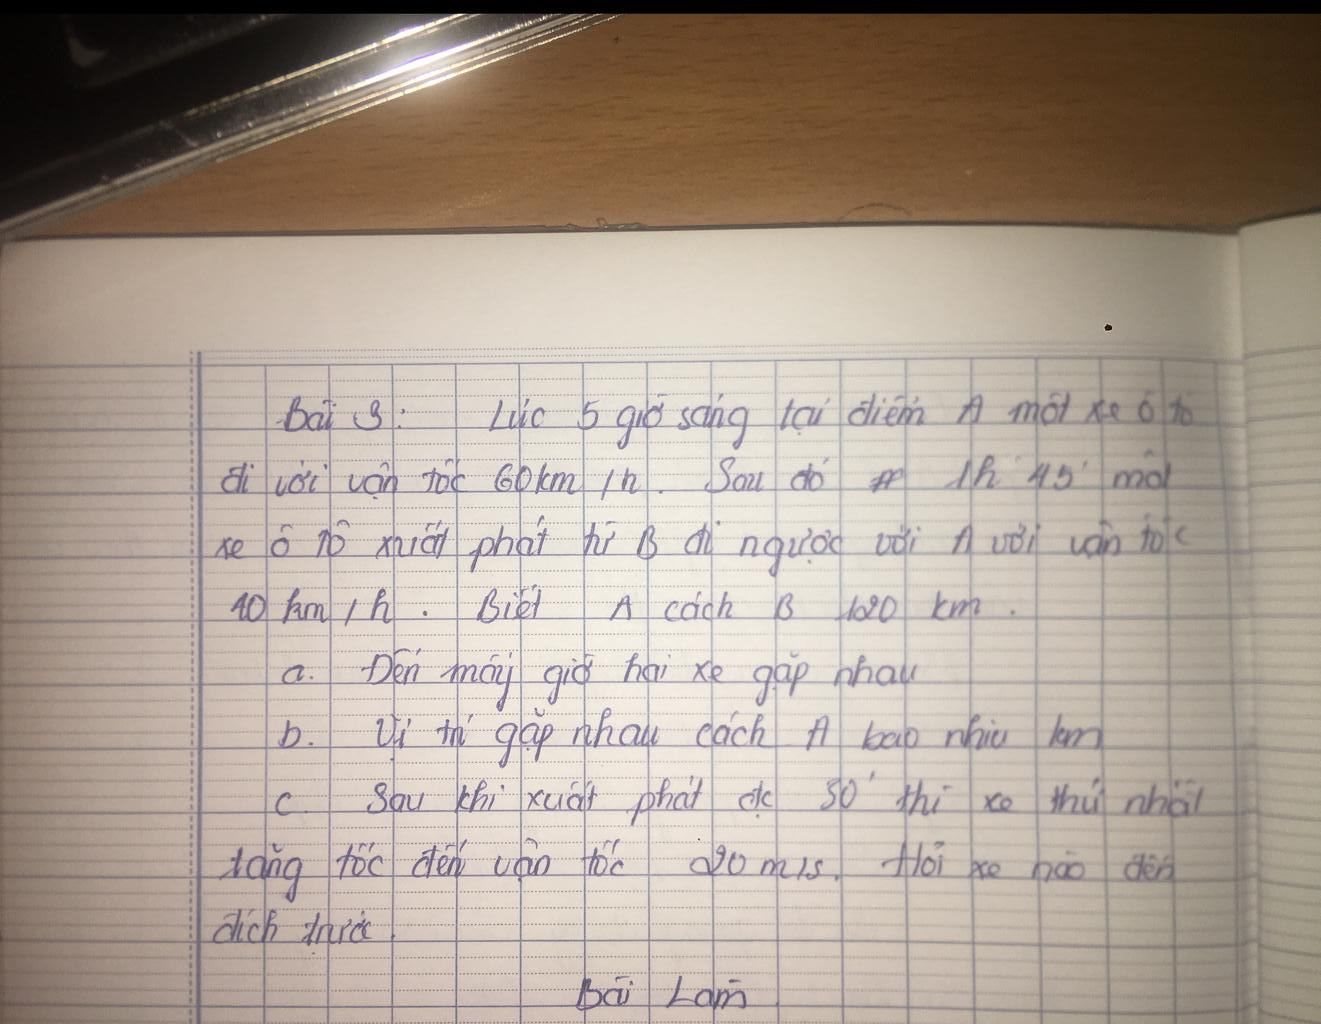 Bài 3: Lúc 5 giờ sáng tại điểm A một xe ô tô
đi với vận tốc 60km/h. Sau đó 1h 45' một
xe ô tô xuất phát từ B đi ngược với A với vận tốc
40 km/h. Biết A cách B 120 km.
a. Đến mấy giờ hai xe gặp nhau
b. Vị trí gặp nhau cách A bao nhiu km
c. Sau khi xuất phát đc 30' thì xe thứ nhất
tăng tốc đến vận tốc 20m/s. Hỏi xe nào đến
đích trước.
Bài Làm